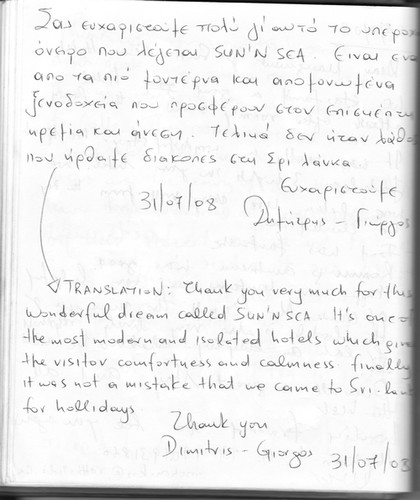 Σας ευχαριστούμε πολύ γι αυτό το υπέροχο
όνειρο που λέγεται SUN'N SEA. Είναι ενα
απο τα πιό μοντέρνα και απομονωμένα
ξενοδοχεία που προσφέρουν στον επισκέπτη
ηρεμία και άνεση. Τελικά δεν ήταν λάθος
που ήρθαμε διακοπες στη Σρι Λάνκα
Ευχαριστούμε
31/07/08
Δημήτρης - Γιώργος
TRANSLATION: Thank you very much for this
wonderful dream called SUN'N SEA. It's one of
the most modern and isolated hotels which give
the visitor comfortness and calmness. finally
it was not a mistake that we came to Sri-lan
for hollidays
Thank you
Dimitris - Giorgos 31/07/08